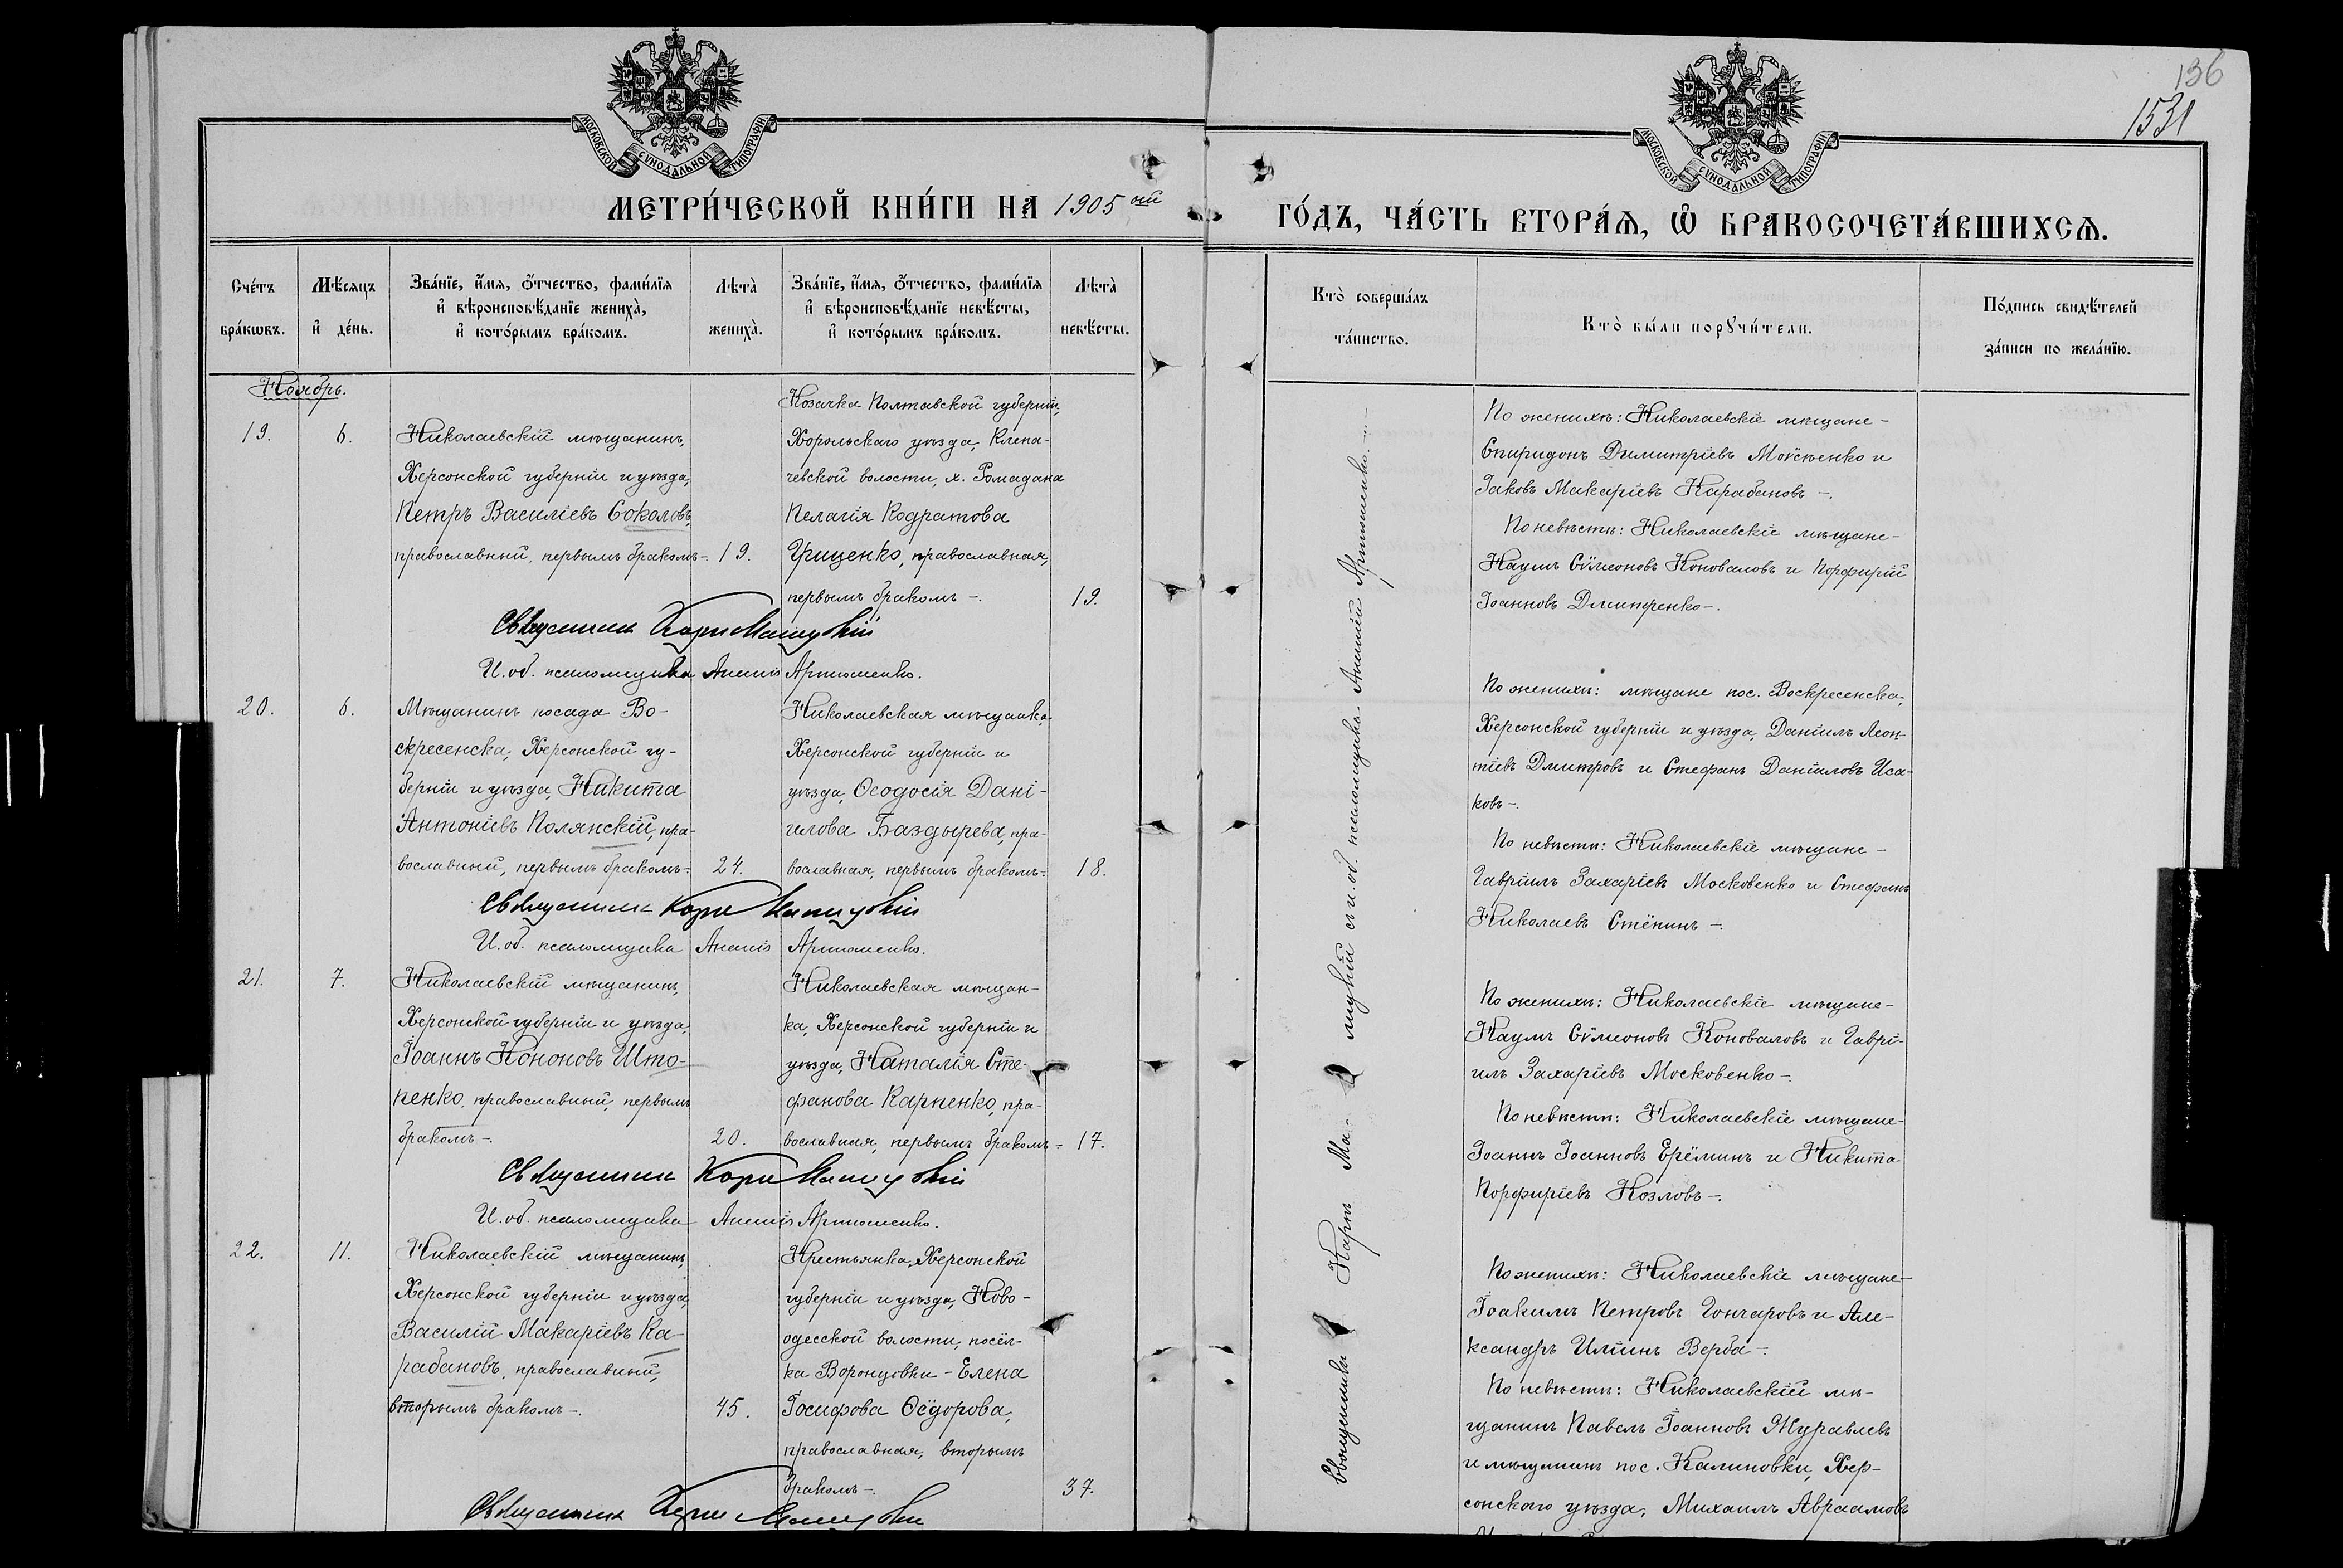 136
1531
МОСКОВСКОЙ СѴНОДАЛЬНОЙ ТИПОГРАФІИ
МОСКОВСКОЙ СѴНОДАЛЬНОЙ ТИПОГРАФІИ
МЕТРИ́ЧЕСКОЙ КНИ́ГИ НА 1905 ой
ГО́ДЪ, ЧА́СТЬ ВТОРА́Ѧ, Ѽ БРАКОСОЧЕТА́ВШИХСѦ.
Сче́тъ
бра́кѡвъ.
Мѣ́сяцъ
и҆ де́нь.
Зва́нїе, и҆́мя, ѻ҆́тчество, фами́лїя
и҆ вѣроисповѣ́данїе жениха̀,
и҆ кото́рымъ бра́комъ.
Лѣта̀
жениха̀.
Зва́нїе, и҆́мя, ѻ҆́тчество, фами́лїя
и҆ вѣроисповѣ́данїе невѣ́сты,
и҆ кото́рымъ бра́комъ.
Лѣта̀
невѣ́сты.
Кто̀ соверша́лъ
та́инство.
Кто̀ бы́ли порꙋчи́тели.
По́дпись свидѣ́телей
за́писи по жела́нїю.
Ноябрь.
19.
6.
Николаевскій мѣщанинъ,
Херсонской губерніи и уѣзда,
Петръ Василіевъ Соколовъ,
православный, первымъ бракомъ-.
19.
Козачка Полтавской губерніи,
Хорольскаго уѣзда, Клепа-
чевской волости, х. Ромадана
Пелагія Кодратова
Гриценко, православная,
первымъ бракомъ -.
19.
Священникъ Карпъ
И. об. псаломщика Ананій Артюшенко.
По женихѣ: Николаевскіе мѣщане -
Спиридонъ Димитріевъ Моѵсѣенко и
Іаковъ Макаріевъ Карабановъ -.
По невѣстѣ: Николаевскіе мѣщане-
Наумъ Сѵмеоновъ Коноваловъ и Порфирій
Іоанновъ Дмитренко-.
20.
6.
Мѣщанинъ посада Во-
скресенска, Херсонской гу-
берніи и уѣзда, Никита
Антоніевъ Полянскій, пра-
вославный, первымъ бракомъ-.
24.
Николаевская мѣщанка,
Херсонской губерніи и
уѣзда, Ѳеодосія Дані-
илова Баздырева, пра-
вославная, первымъ бракомъ-.
18.
Священникъ Карпъ
И. об. псаломщика Ананій Артюшенко.
По женихѣ: мѣщане пос. Воскресенска,
Херсонской губерніи и уѣзда, Даніилъ Леон-
тіевъ Дмитровъ и Стефанъ Даніиловъ Иса-
ковъ -.
По невѣстѣ: Николаевскіе мѣщане -
Гавріилъ Захаріевъ Московенко и Стефанъ
Николаевъ Стёпинъ -.
21.
7.
Николаевскій мѣщанинъ,
Херсонской губерніи и уѣзда,
Іоаннъ Кононовъ Што-
пенко, православный, первымъ
бракомъ-.
20.
Николаевская мѣщан-
ка, Херсонской губерніи и
уѣзда, Наталія Сте-
фанова Карпенко, пра-
вославная, первымъ бракомъ-.
17.
Священникъ Карпъ
И. об. псаломщика Ананій Артюшенко.
По женихѣ: Николаевскіе мѣщане-
Наумъ Сѵмеоновъ Коноваловъ и Гаврі-
илъ Захаріевъ Московенко -.
По невѣстѣ: Николаевскіе мѣщане-
Іоаннъ Іоанновъ Ерёминъ и Никита
Порфиріевъ Козловъ -.
22.
11.
Николаевскій мѣщанинъ,
Херсонской губерніи и уѣзда,
Василій Макаріевъ Ка-
рабановъ, православный,
вторымъ бракомъ-.
45.
Крестьянка, Херсонской
губерніи и уѣзда, Ново-
одесской волости, посёл-
ка Воронцовки - Елена
Іосифова Ѳёдорова,
православная, вторымъ
бракомъ -.
37.
Священникъ Карпъ
По женихѣ: Николаевскіе мѣщане-
Іоакимъ Петровъ Гончаровъ и Але-
ксандръ Иліинъ Верба -.
По невѣстѣ: Николаевскій мѣ-
щанинъ Павелъ Іоанновъ Журавлевъ
и мѣщанинъ пос. Калиновки, Хер-
сонскаго уѣзда, Михаилъ Авраамовъ
Священникъ Карпъ съ и. об. псаломщика Ананій Артюшенко.